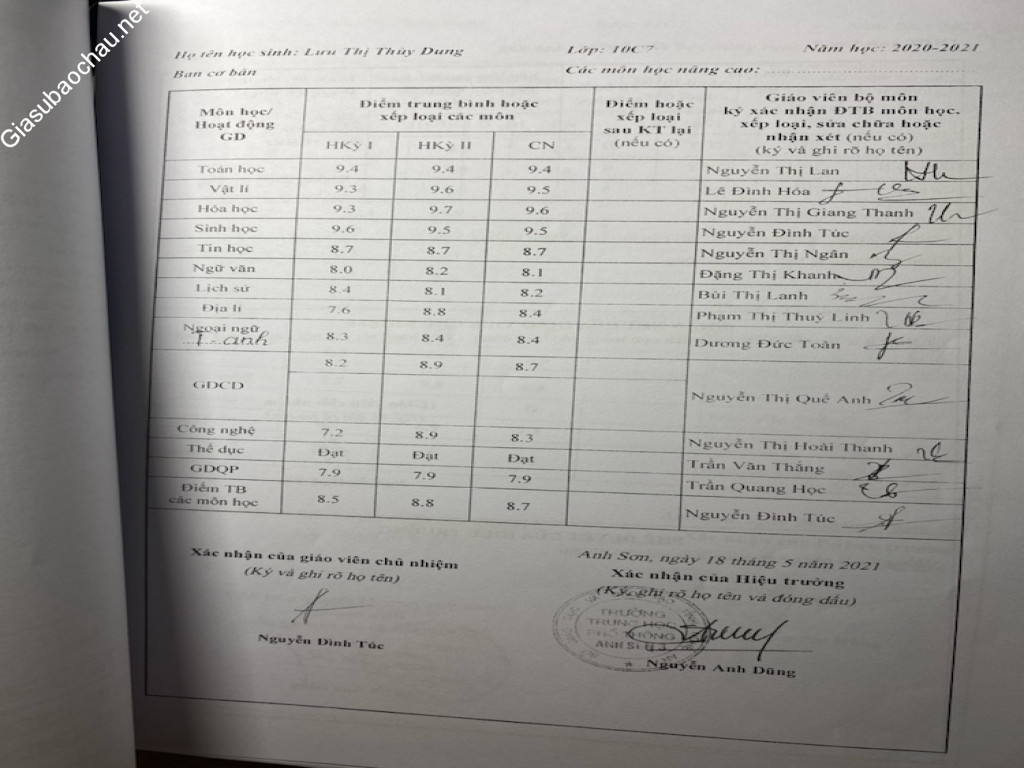 Giasubaochau.net
Họ tên học sinh: Lưu Thị Thùy Dung Lớp: 10C7 Năm học: 2020-2021
Ban cơ bản Các môn học nâng cao:
Môn học/ Hoạt động GD Điểm trung bình hoặc xếp loại các môn Điểm hoặc xếp loại sau KT lại (nếu có) Giáo viên bộ môn ký xác nhận ĐTB môn học, xếp loại, sửa chữa hoặc nhận xét (nếu có) (ký và ghi rõ họ tên)
HKỳ I HKỳ II CN
Toán học 9.4 9.4 9.4 Nguyễn Thị Lan
Vật lí 9.3 9.6 9.5 Lê Đình Hóa
Hóa học 9.3 9.7 9.6 Nguyễn Thị Giang Thanh
Sinh học 9.6 9.5 9.5 Nguyễn Đình Túc
Tin học 8.7 8.7 8.7 Nguyễn Thị Ngân
Ngữ văn 8.0 8.2 8.1 Đặng Thị Khanh
Lịch sử 8.4 8.1 8.2 Bùi Thị Lanh
Địa lí 7.6 8.8 8.4 Phạm Thị Thuỳ Linh
Ngoại ngữ 8.3 8.4 8.4 Dương Đức Toàn
T. anh
8.2 8.9 8.7
GDCD Nguyễn Thị Quế Anh
Công nghệ 7.2 8.9 8.3 Nguyễn Thị Hoài Thanh
Thể dục Đạt Đạt Đạt Trần Văn Thắng
GDQP 7.9 7.9 7.9 Trần Quang Học
Điểm TB các môn học 8.5 8.8 8.7 Nguyễn Đình Túc
Xác nhận của giáo viên chủ nhiệm
(Ký và ghi rõ họ tên)
Nguyễn Đình Túc
Anh Sơn, ngày 18 tháng 5 năm 2021
Xác nhận của Hiệu trưởng
(Ký, ghi rõ họ tên và đóng dấu)
TRƯỜNG
TRUNG HỌC
PHỔ THÔNG
ANH SƠN 3
Nguyễn Anh Dũng